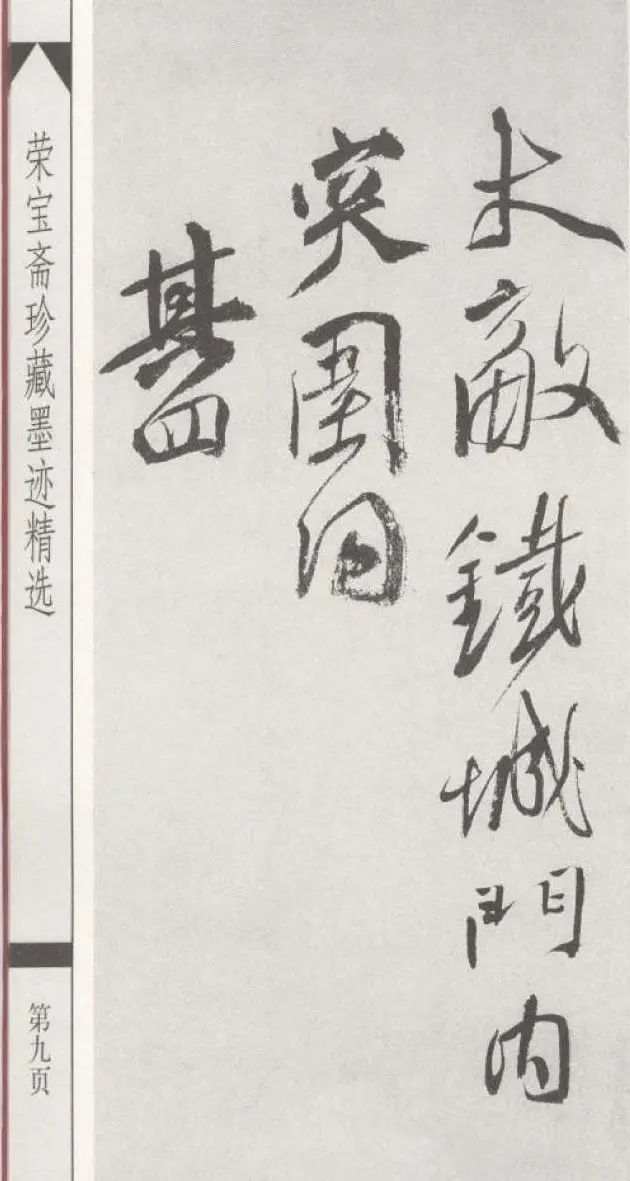 未敵鐵城門内
突圍同
其四
荣宝斋珍藏墨迹精选
第九页